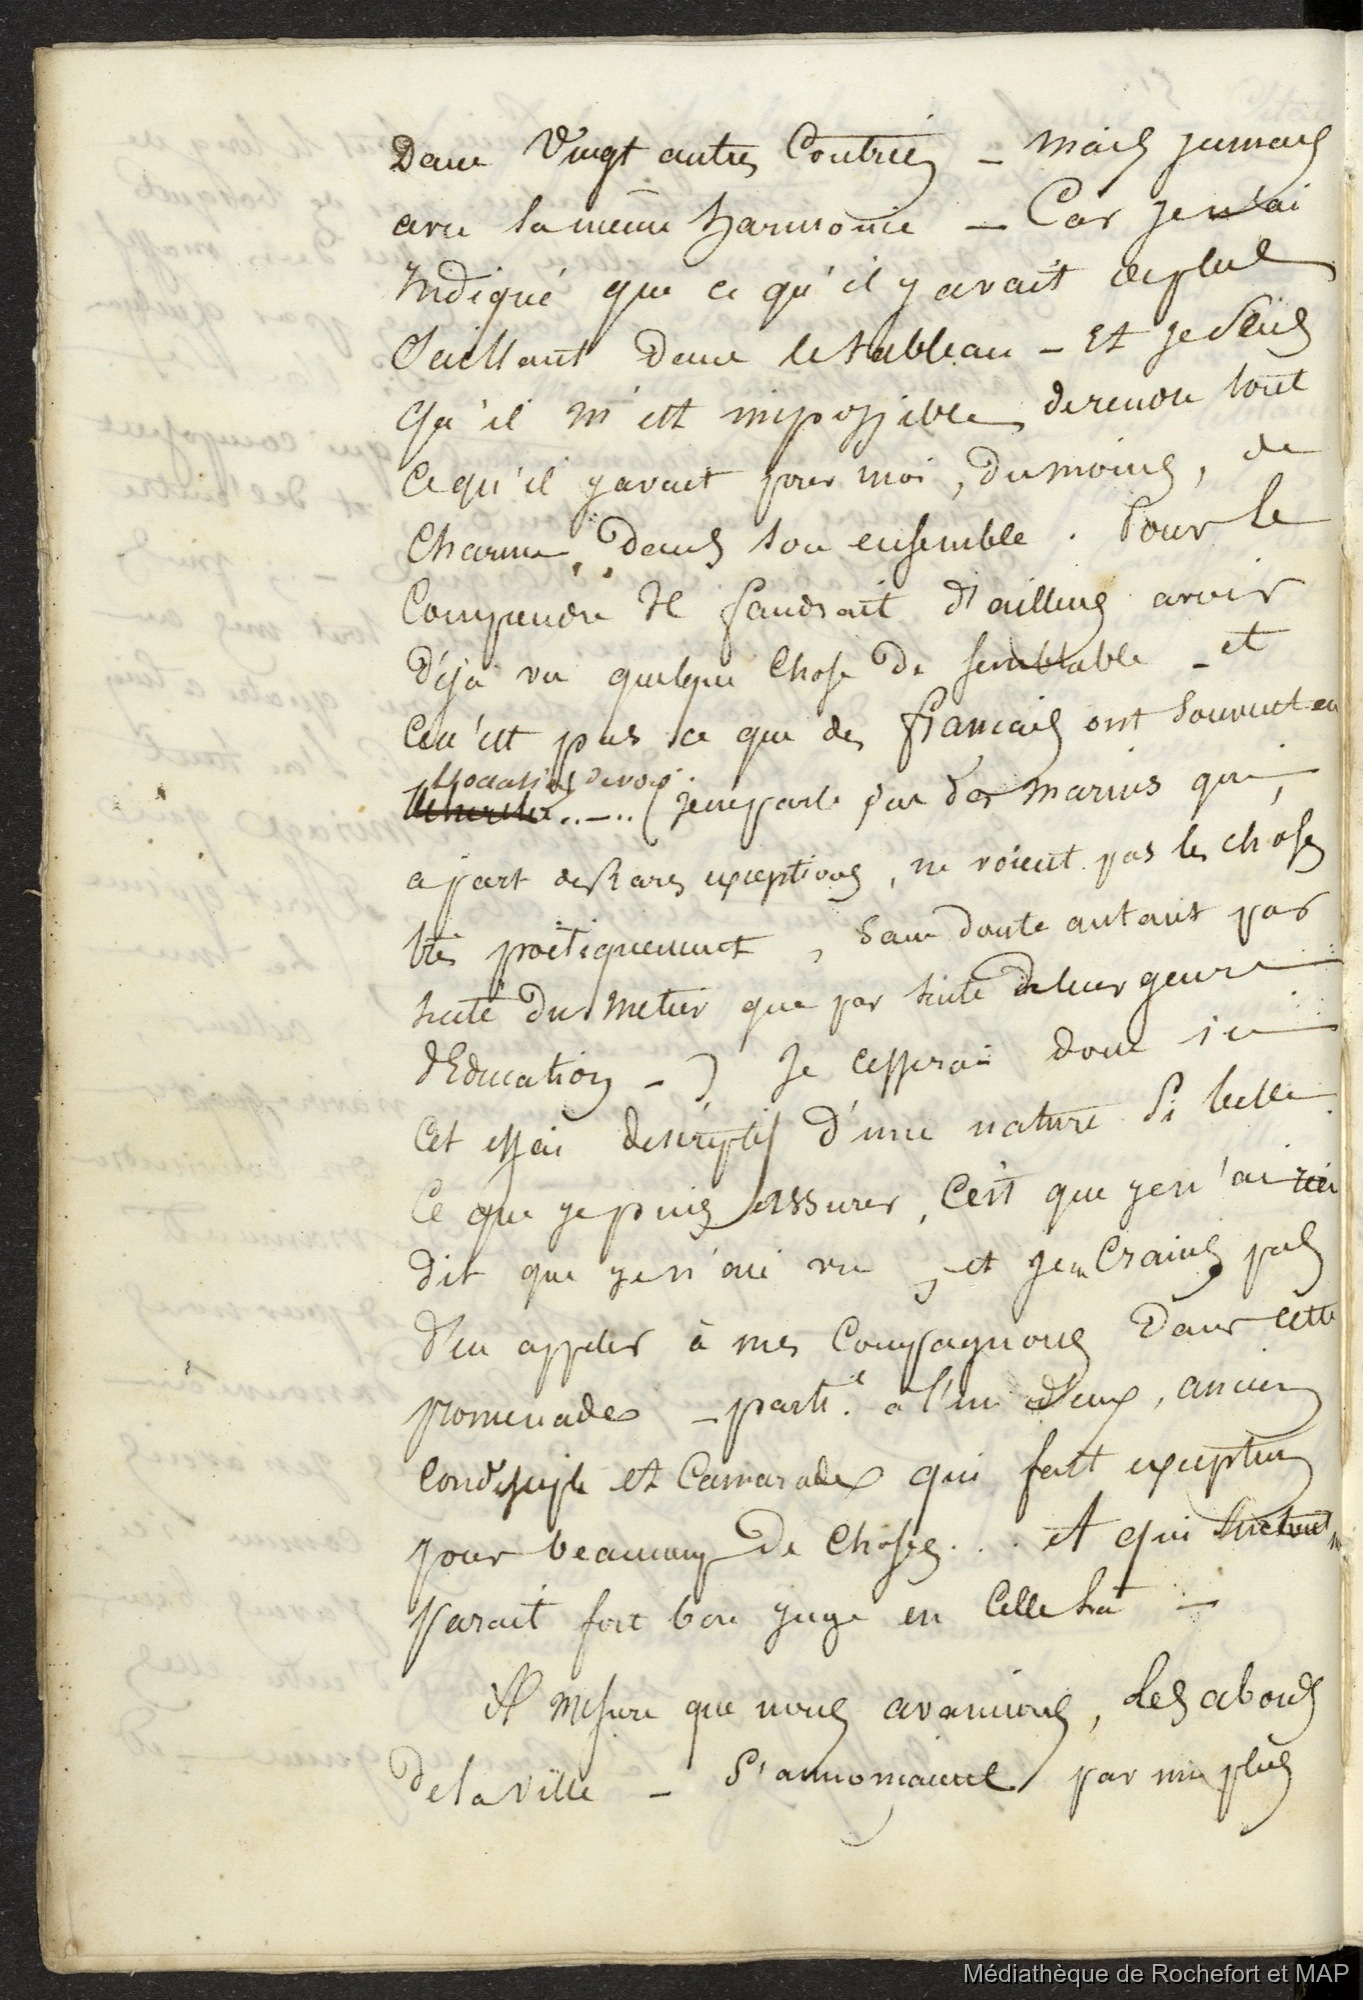 Dans Vingt autres Contrées – mais jamais
avec la même harmonie – Car je n'ai
Indiqué que ce qu'il y avait de plus
Saillant dans le tableau – Et je sens
qu'il m'est impossible de rendre tout
Ce qu'il y avait pour moi, du moins, de
Charme, dans son ensemble. Pour le
Comprendre Il faudrait d'ailleurs avoir
Déjà vu quelque Chose de semblable – et
Ce n'est pas ce que des français ont souvent eu
l'occasion de voir.
..–.. (je ne parle pas des marins qui,
a part de Rares exceptions, ne voient pas les choses
très poëtiquement, sans doute autant par
suite du metier que par suite de leur genre
d'Education –) Je cesserai donc ici
Cet essai descriptif d'une nature si belle
Ce que je puis assurer, C'est que je n'ai rien
dit que je n'aie vu, et je ne Crains pas
d'en appeler à mes Compagnons Dans cette
promenade – partre. a l'un d'eux, ancien
Condisciple et Camarade qui fait exception
pour beaucoup de Choses... et qui surtout me
parait fort bon juge en Celle la –
A mesure que nous avancions, Les abords
de la ville – S'annonçaient par un plus
Médiathèque de Rochefort et MAP